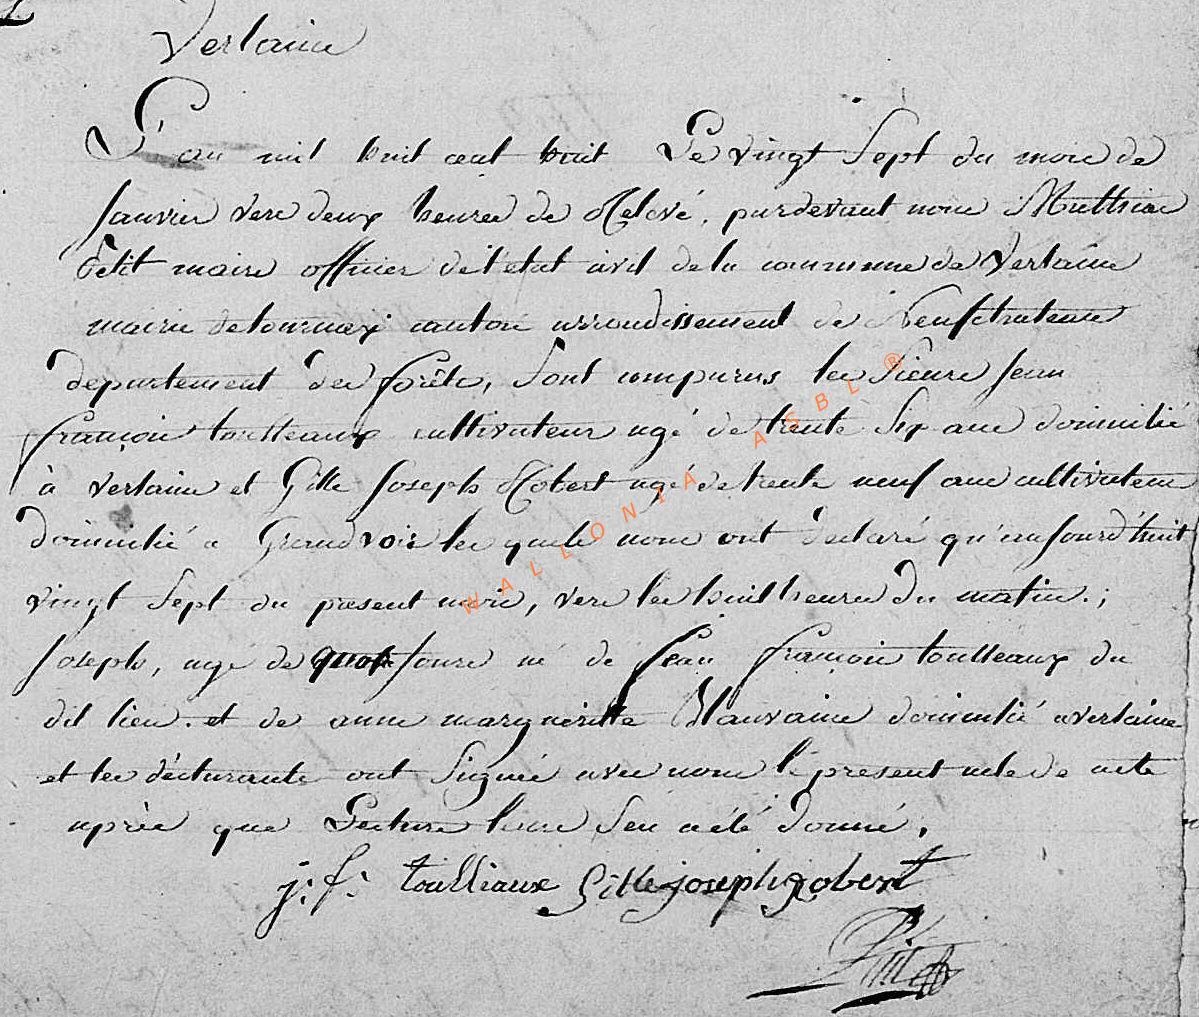 Verlaine
L'an mil huit cent huit Le vingt Sept du mois de
janvier vers deux heures de Relevé, pardevant nous Matthias
Petit maire officier de l'etat civil de la commune de Verlaine
mairie de tournay canton arrondissement de Neufchateau
departement des forêts, Sont comparus les Sieurs jean
françois toulleaux cultivateur agé de trente Six ans domicilié
à verlaine et Gille joseph Robert agé de trente neuf ans cultivateur
domicilié a Grandvoir les quels nous ont declaré qu'aujourd'huit
vingt Sept du present mois, vers les huit heures du matin.,
joseph, agé de jours né de jean françois toulleaux du
dit lieu. et de anne margueritte Mauvaine domicilié a verlaine
et les déclarants ont Signée avec nous lé present acte
après que Lecture leure Sen a été donné,
j: f: toulliaux Gille joseph Robert
Petit
WALLONIA ASBL ®